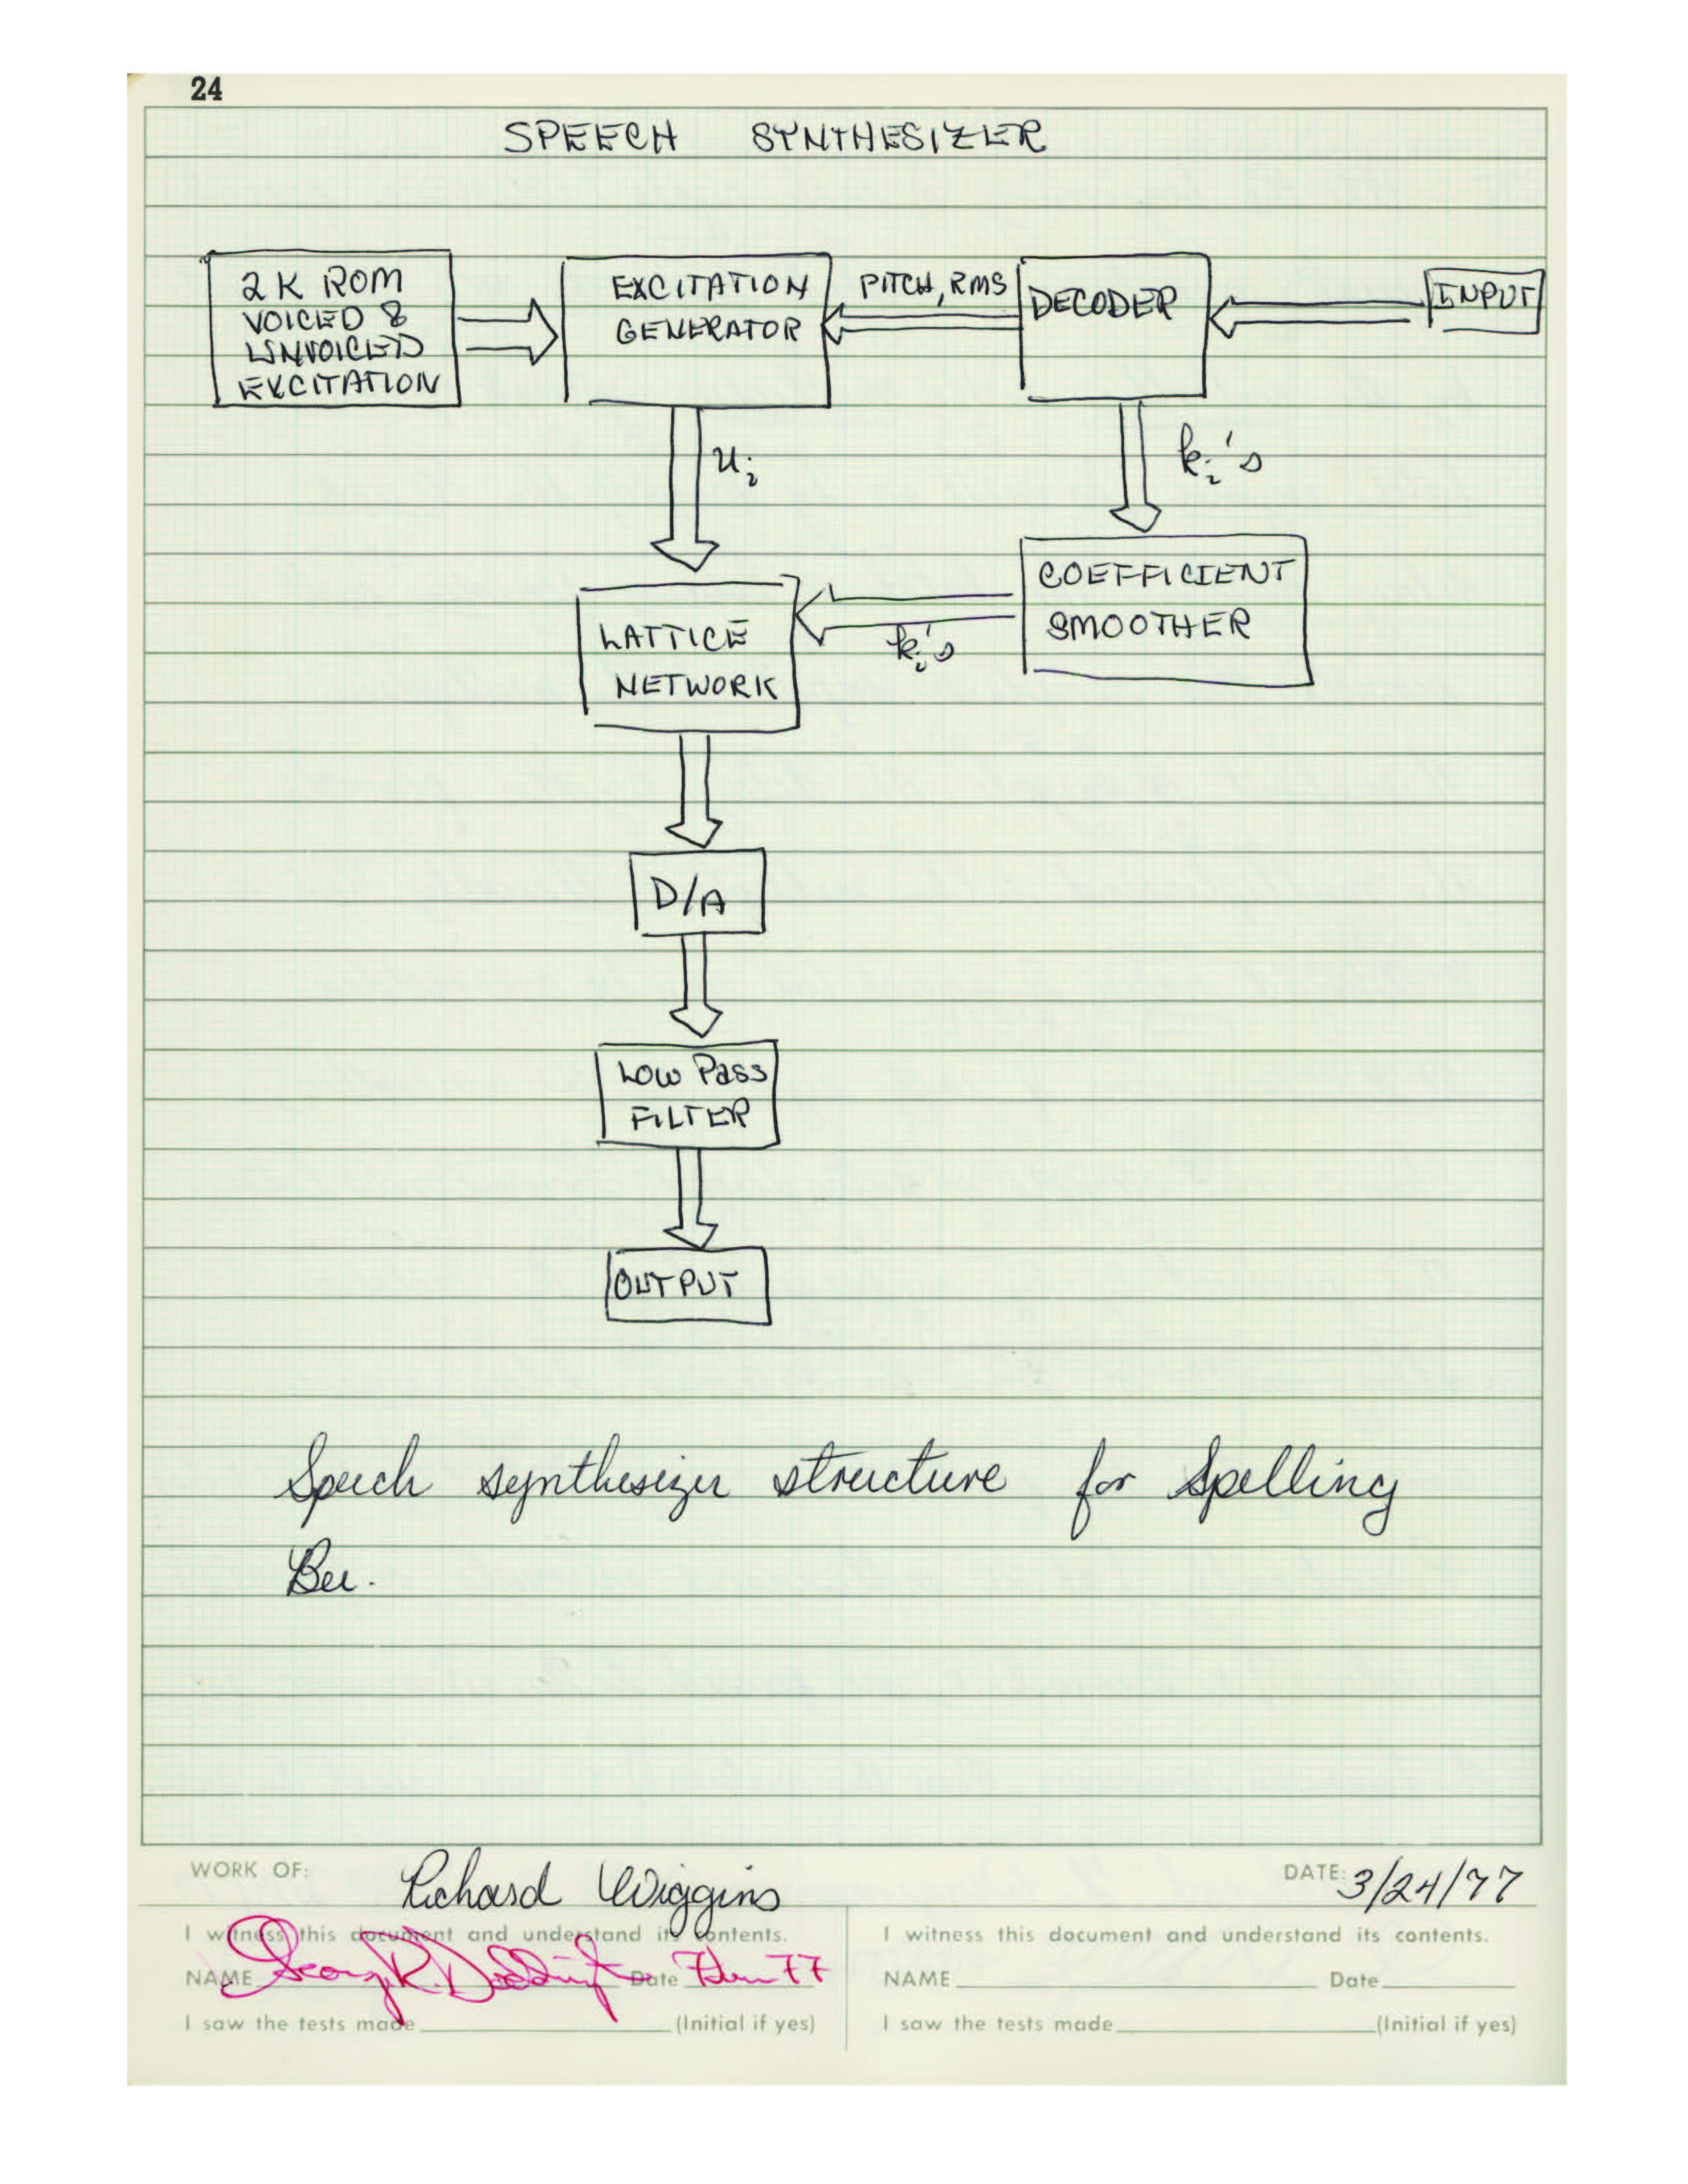 24
SPEECH SYNTHESIZER
2K ROM
VOICED &
UNVOICED
EXCITATION
EXCITATION
GENERATOR
PITCH, RMS
DECODER
INPUT
u_i
k_i's
COEFFICIENT
SMOOTHER
k_i's
LATTICE
NETWORK
D/A
LOW PASS
FILTER
OUTPUT
Speech synthesizer structure for Spelling
Bee.
WORK OF: Richard Wiggins DATE: 3/24/77
I witness this document and understand its contents.
NAME George R. Doddington Date 77
I saw the tests made (Initial if yes)
I witness this document and understand its contents.
NAME Date
I saw the tests made (Initial if yes)